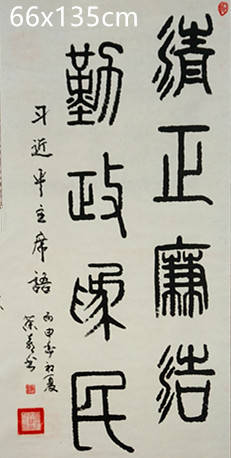 66x135cm
清正廉洁
勤政為民
习近平主席語
丙申年初夏